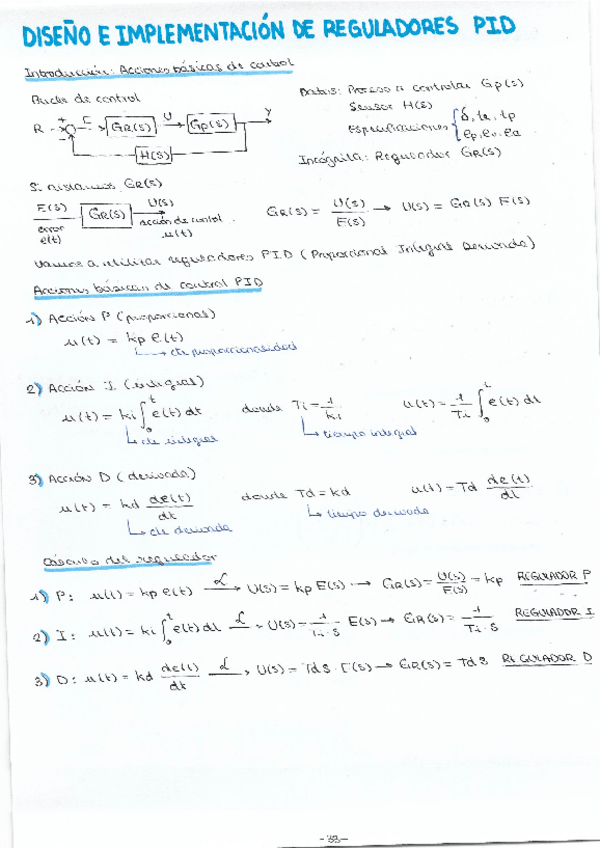 DISEÑO E IMPLEMENTACIÓN DE REGULADORES PID
Introducción: Acciones básicas de control
Bucle de control
R + - E GR(s) U GP(s) Y
H(s)
Datos: Proceso a controlar Gp(s)
Sensor H(s)
Especificaciones { δ, te, tp
ep, ev, ea
Incógnita: Regulador GR(s)
Si aislamos GR(s)
E(s) error e(t) GR(s) U(s) acción de control u(t)
GR(s) = U(s)/E(s) → U(s) = GR(s) E(s)
Vamos a utilizar reguladores PID (Proporcional Integral Derivada)
Acciones básicas de control PID
1) Acción P (proporcional)
u(t) = kp e(t)
↳ cte proporcionalidad
2) Acción I (integral)
u(t) = ki ∫₀ᵗ e(t) dt donde Ti = 1/ki u(t) = 1/Ti ∫₀ᵗ e(t) dt
↳ cte integral ↳ tiempo integral
3) Acción D (derivada)
u(t) = kd de(t)/dt donde Td = kd u(t) = Td de(t)/dt
↳ cte derivada ↳ tiempo derivado
Cálculo del regulador
1) P: u(t) = kp e(t) ℒ→ U(s) = kp E(s) → GR(s) = U(s)/E(s) = kp REGULADOR P
2) I: u(t) = ki ∫₀ᵗ e(t) dt ℒ→ U(s) = 1/Ti·s E(s) → GR(s) = 1/Ti·s REGULADOR I
3) D: u(t) = kd de(t)/dt ℒ→ U(s) = Td s · E(s) → GR(s) = Td s REGULADOR D
-33-